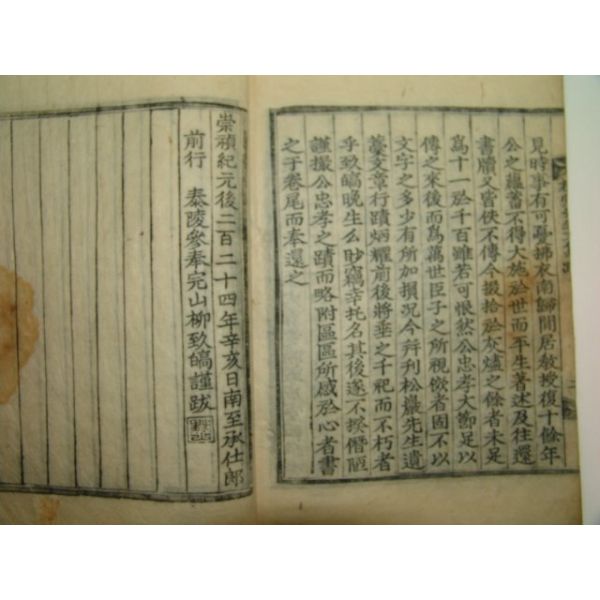 見時事有可憂拂衣南歸閒居教授復十餘年
公之蘊蓄不得大施於世而平生著述及往還
書牘又皆佚不傳今掇拾於灰燼之餘者未足
爲十一於千百雖若可恨然公忠孝大節足以
傳之來後而爲萬世臣子之所視傚者固不以
文字之多少有所加損况今幷刊松巖先生遺
藁文章行蹟炳耀前後將垂之千祀而不朽者
乎致皜晚生么眇竊幸托名其後遂不揆僭陋
謹撮公忠孝之蹟而略附區區所感於心者書
之于卷尾而奉還之
崇禎紀元後二百二十四年辛亥日南至承仕郎
前行 泰陵參奉完山柳致皜謹跋